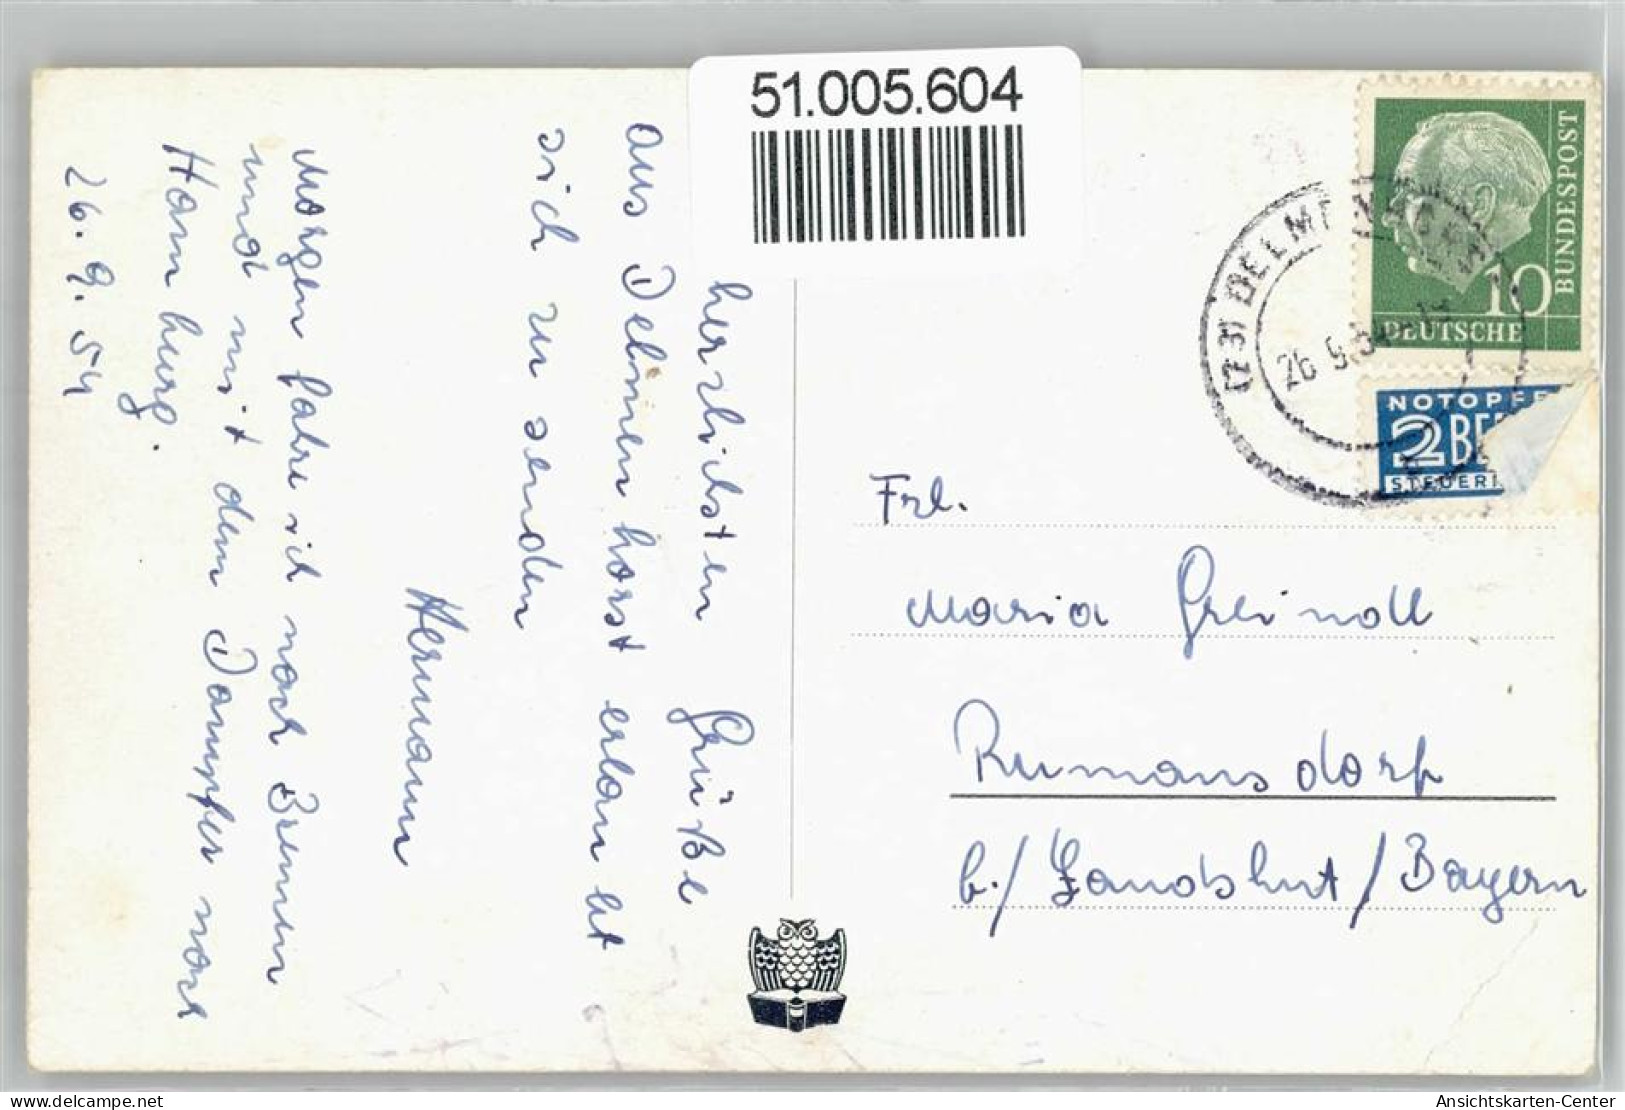 51.005.604
herzlichsten Grüße
aus Delmenhorst erlaubt
sich zu senden
Hermann
Morgen fahre ich nach Bremen
und mit dem Dampfer nach
Hamburg.
26. 9. 54
BUNDESPOST
10
DEUTSCHE
DELMENHORST
26.9.54
NOTOPFE
2 BE
STEUER
Frl.
Maria Greindl
Rumansdorf
b./ Landshut / Bayern
Ansichtskarten-Center
www.delcampe.net